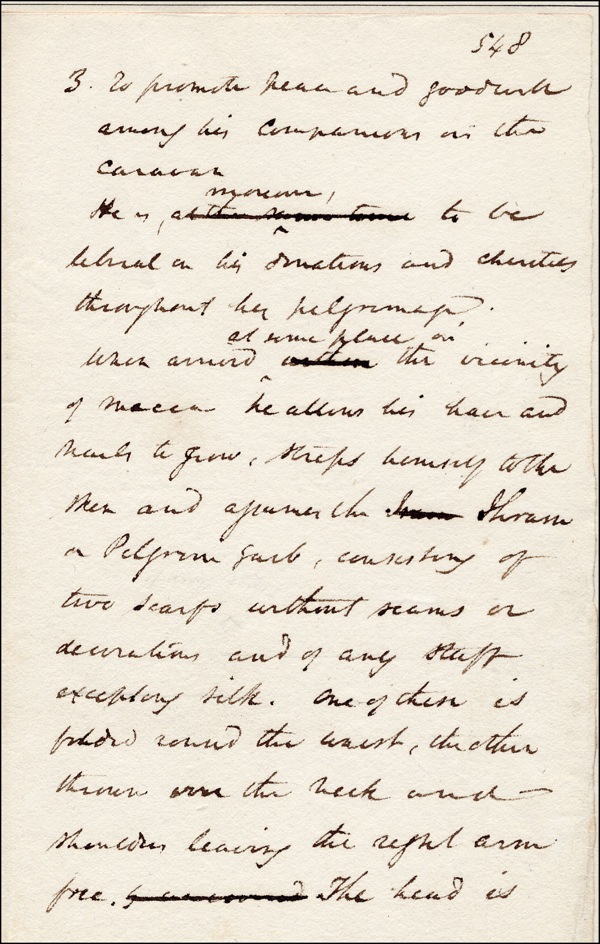 548
3. To promote peace and goodwill
among his companions on the
caravan
moreover,
He is, at the same time to be
liberal in his donations and charities
throughout his pilgrimage.
at some place in
When arrived within the vicinity
of Mecca he allows his hair and
nails to grow, strips himself to the
skin and assumes the Ihram
or Pilgrim Garb, consisting of
two scarfs without seams or
decorations and of any stuff
excepting silk. One of these is
folded round the waist, the other
thrown over the neck and
shoulders leaving the right arm
free. The head is